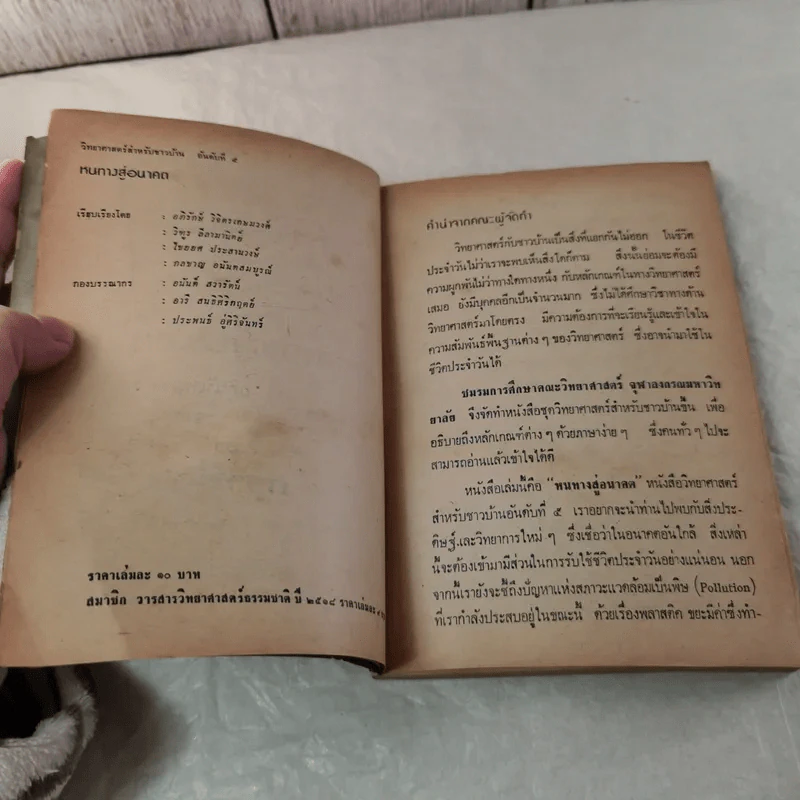 วิทยาศาสตร์สำหรับชาวบ้าน อันดับที่ ๕
หนทางสู่อนาคต
เรียบเรียงโดย : อภิรักษ์ วิจิตรเกษมวงศ์
: วิฑูร ลีลามานิตย์
: ไชยยศ ประสานวงษ์
: กลชาญ อนันตสมบูรณ์
กองบรรณากร : อนันต์ สวารัตน์
: อารี สนธิศิริกฤตย์
: ประพนธ์ อู่ศิริจันทร์
ราคาเล่มละ ๑๐ บาท
สมาชิก วารสารวิทยาศาสตร์ธรรมชาติ ปี ๒๕๑๘ ราคาเล่มละ
คำนำจากคณะผู้จัดทำ
วิทยาศาสตร์กับชาวบ้านเป็นสิ่งที่แยกกันไม่ออก ในชีวิต
ประจำวันไม่ว่าเราจะพบเห็นสิ่งใดก็ตาม สิ่งนั้นย่อมจะต้องมี
ความผูกพันไม่ว่าทางใดทางหนึ่ง กับหลักเกณฑ์ในทางวิทยาศาสตร์
เสมอ ยังมีบุคคลอีกเป็นจำนวนมาก ซึ่งไม่ได้ศึกษาวิชาทางด้าน
วิทยาศาสตร์มาโดยตรง มีความต้องการที่จะเรียนรู้และเข้าใจใน
ความสัมพันธ์พื้นฐานต่าง ๆ ของวิทยาศาสตร์ ซึ่งอาจนำมาใช้ใน
ชีวิตประจำวันได้
ชมรมการศึกษาคณะวิทยาศาสตร์ จุฬาลงกรณมหาวิท
ยาลัย จึงจัดทำหนังสือชุดวิทยาศาสตร์สำหรับชาวบ้านขึ้น เพื่อ
อธิบายถึงหลักเกณฑ์ต่าง ๆ ด้วยภาษาง่าย ๆ ซึ่งคนทั่ว ๆ ไปจะ
สามารถอ่านแล้วเข้าใจได้ดี
หนังสือเล่มนี้คือ "หนทางสู่อนาคต" หนังสือวิทยาศาสตร์
สำหรับชาวบ้านอันดับที่ ๕ เราอยากจะนำท่านไปพบกับสิ่งประ-
ดิษฐ์และวิทยาการใหม่ ๆ ซึ่งเชื่อว่าในอนาคตอันใกล้ สิ่งเหล่า
นี้จะต้องเข้ามามีส่วนในการรับใช้ชีวิตประจำวันอย่างแน่นอน นอก
จากนี้เรายังจะชี้ถึงปัญหาแห่งสภาวะแวดล้อมเป็นพิษ (Pollution)
ที่เรากำลังประสบอยู่ในขณะนี้ ด้วยเรื่องพลาสติค ขยะมีค่าซึ่งทำ-